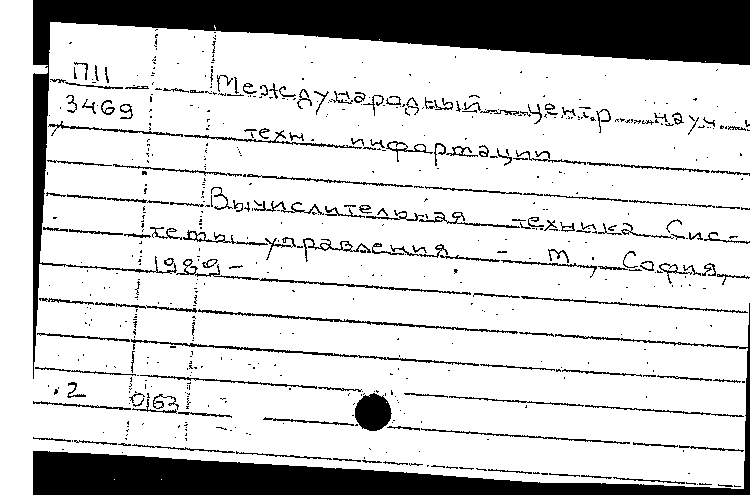 П11
3469
Международный центр науч. и
техн. информации
Вычислительная техника Сис-
темы управления. - М.; София,
1989 -
2 0163